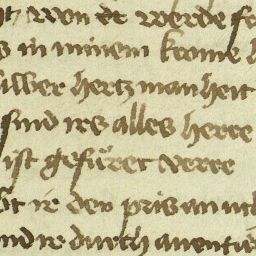 von er werde
in minem krome
silber hertz manheit
sind irs alles herre
ist gefüret verre
ir den pris an
nd ir durch auentü